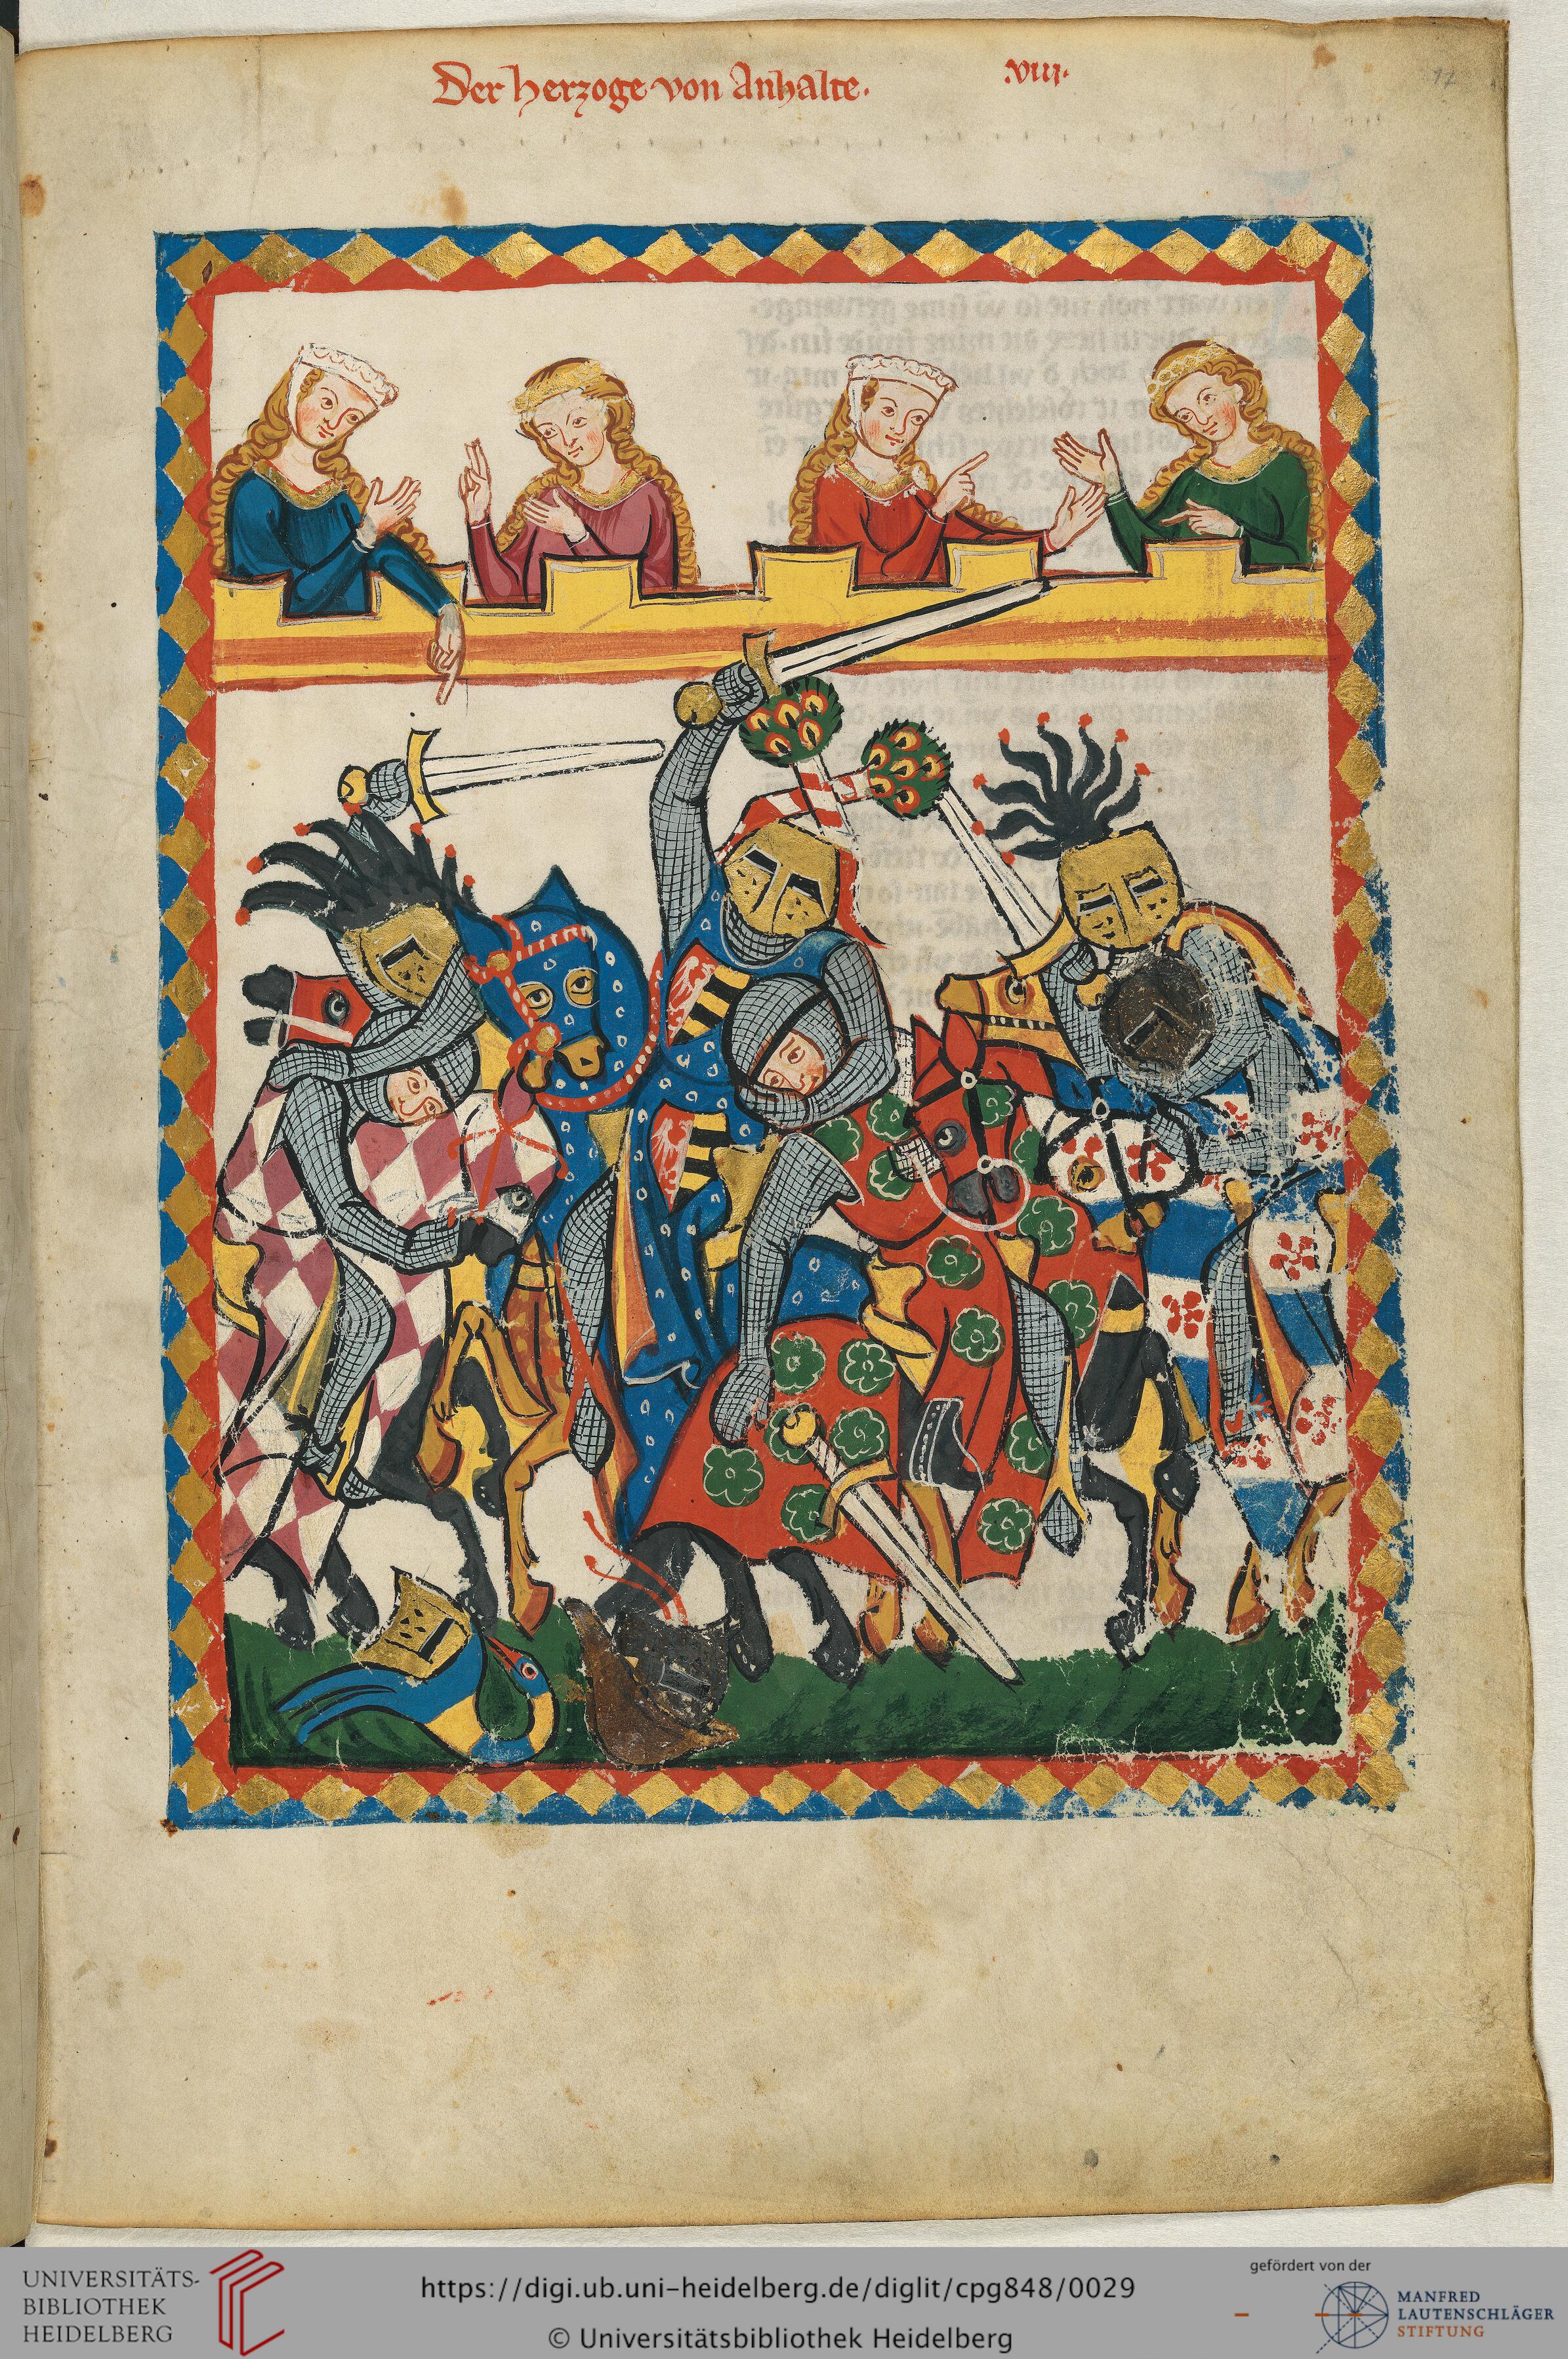 Der herzoge von Anhalte.
.VIII.
17
UNIVERSITÄTS-
BIBLIOTHEK
HEIDELBERG
https://digi.ub.uni-heidelberg.de/diglit/cpg848/0029
© Universitätsbibliothek Heidelberg
gefördert von der
MANFRED
LAUTENSCHLÄGER
STIFTUNG